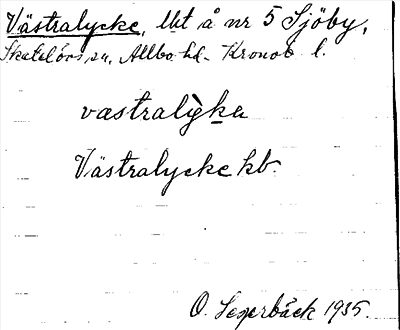 Västralycke, lht å nr 5 Sjöby,
Skatelövs sn, Allbo hd. Kronob l.
vastralỳka
Västralycke kb.
O. Segerbäck 1935.